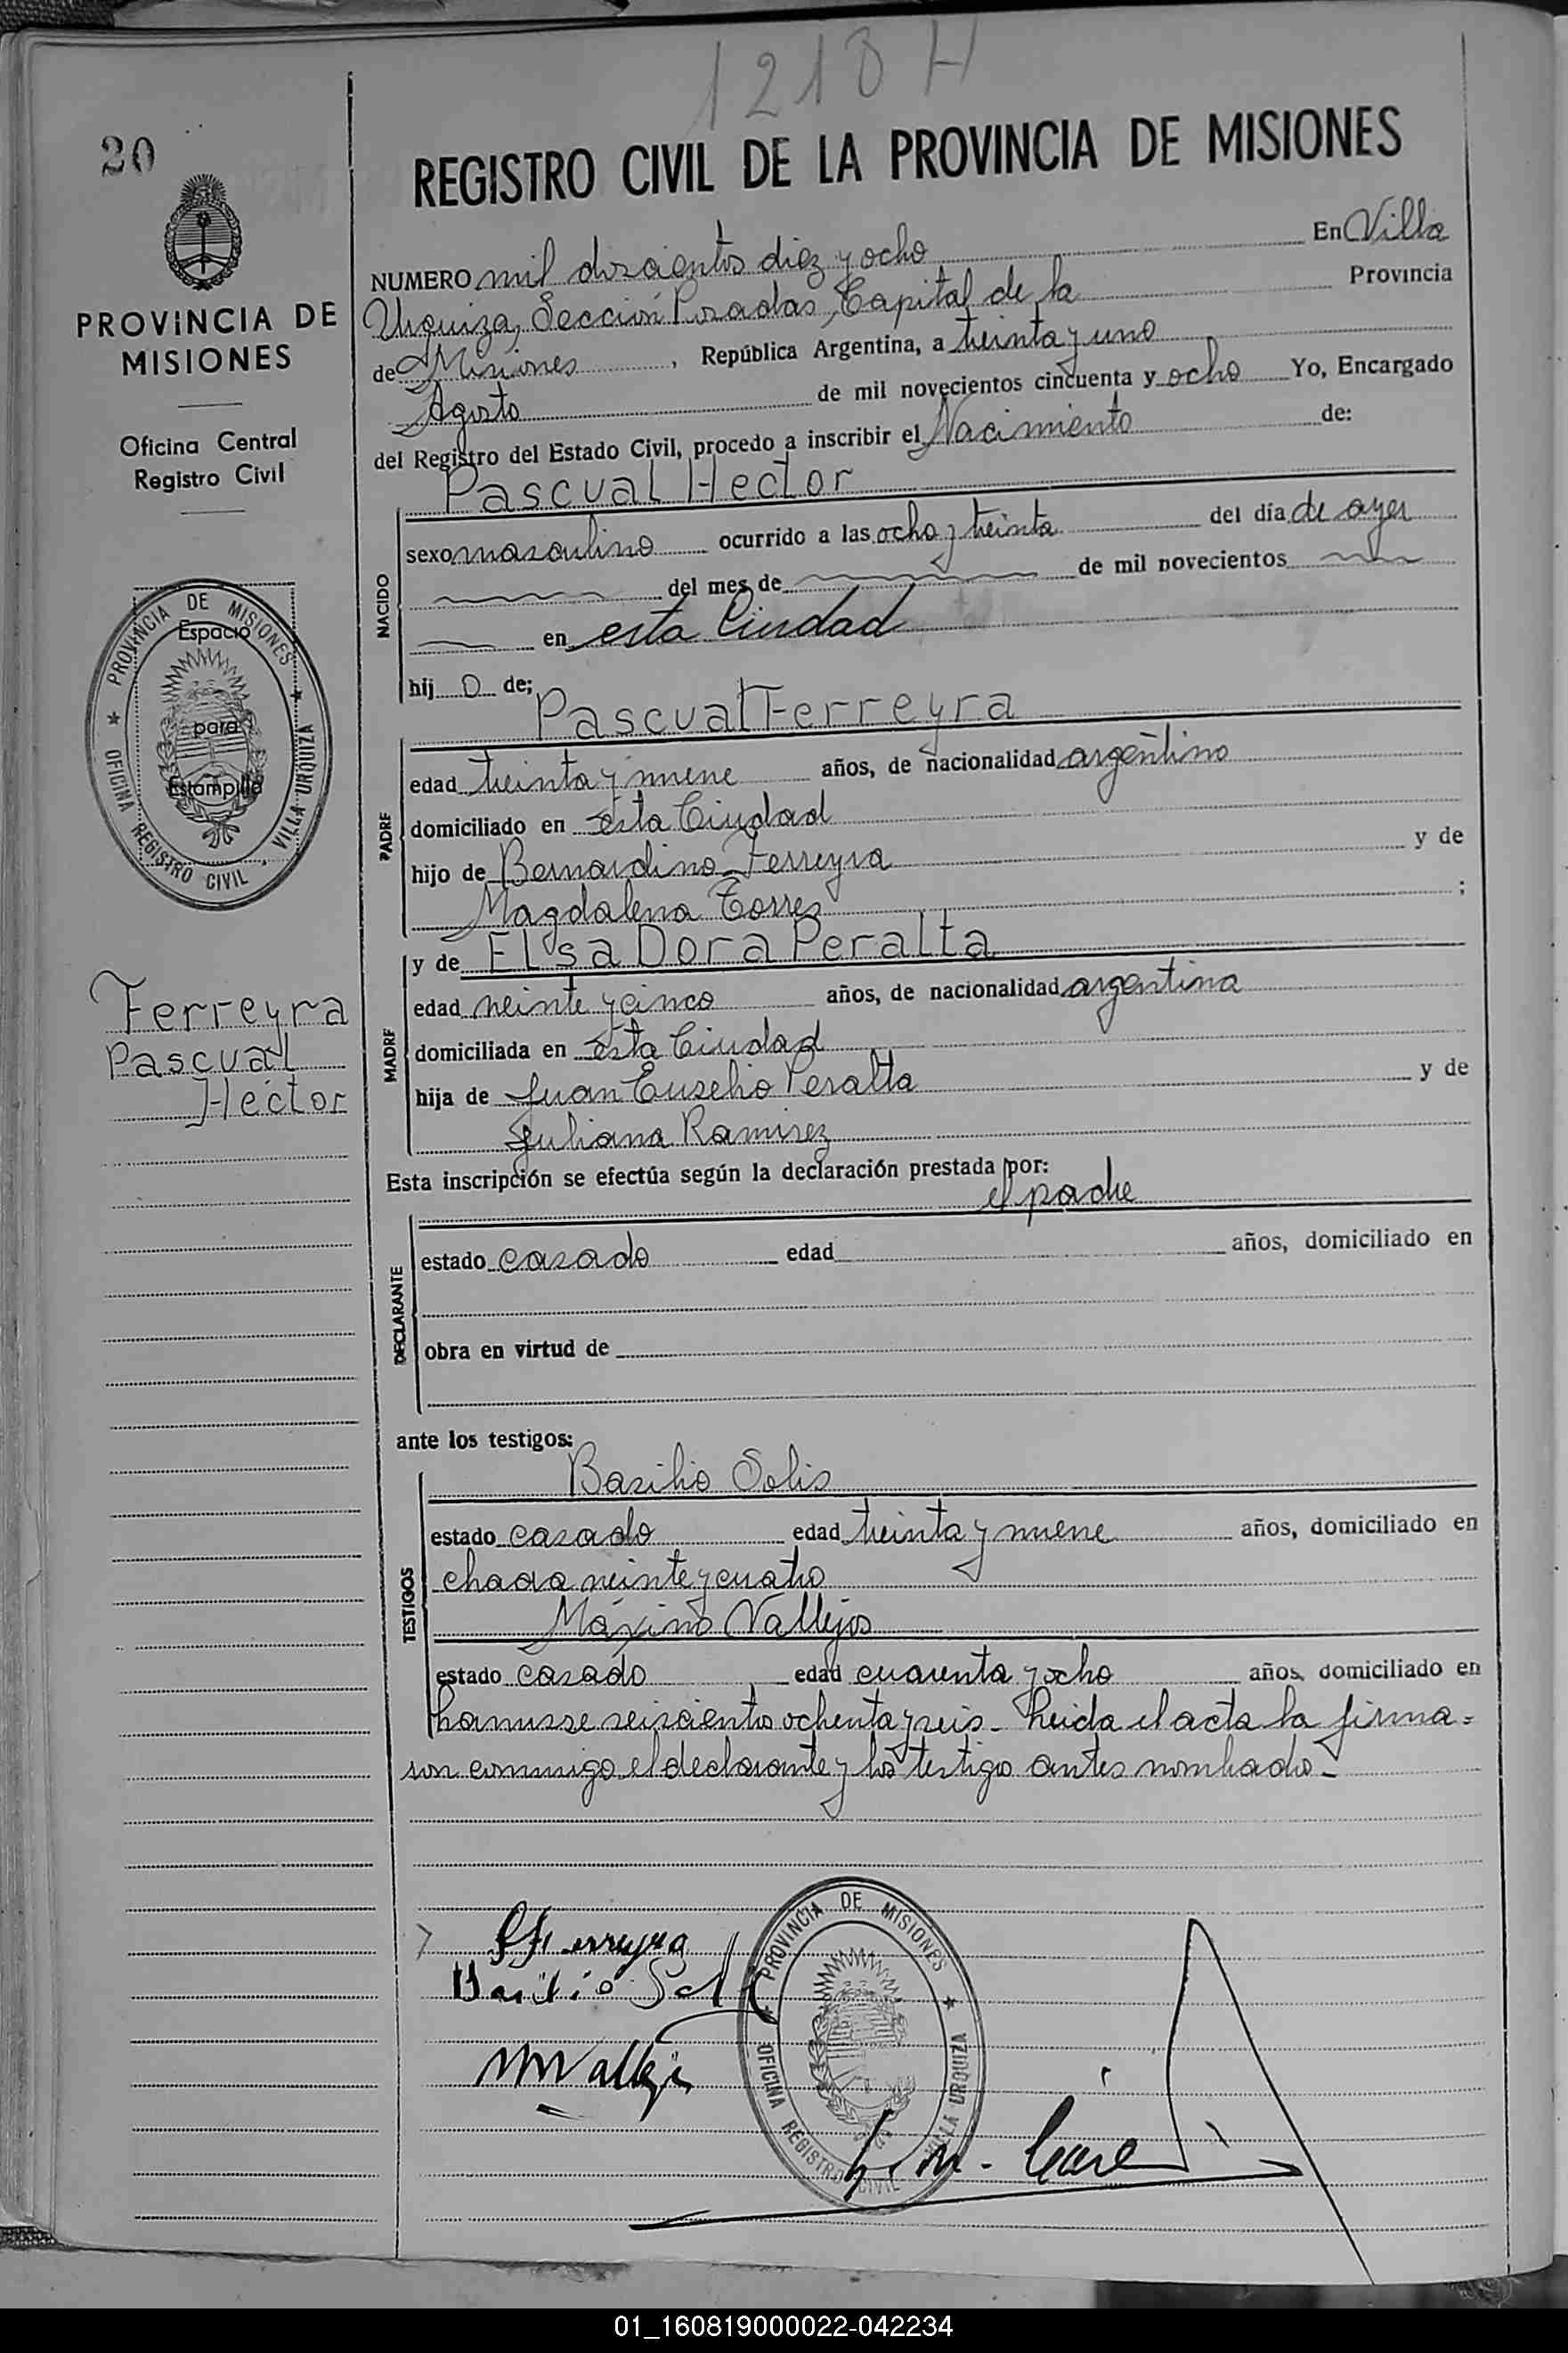 1218 H
20
REGISTRO CIVIL DE LA PROVINCIA DE MISIONES
PROVINCIA DE
MISIONES
Oficina Central
Registro Civil
PROVINCIA DE MISIONES
OFICINA REGISTRO CIVIL - VILLA URQUIZA
Espacio
para
Estampilla
Ferreyra
Pascual
Hector
NUMERO mil doscientos diez y ocho En Villa
Urquiza, Sección Posadas, Capital de la Provincia
de Misiones, República Argentina, a treinta y uno
Agosto de mil novecientos cincuenta y ocho Yo, Encargado
del Registro del Estado Civil, procedo a inscribir el Nacimiento de:
Pascual Hector
NACIDO
sexo masculino ocurrido a las ocho y treinta del día de ayer
del mes de de mil novecientos
en esta Ciudad
hij o de:
Pascual Ferreyra
PADRE
edad treinta y nueve años, de nacionalidad argentino
domiciliado en esta Ciudad
hijo de Bernardino Ferreyra y de
Magdalena Torres ;
y de Elsa Dora Peralta
MADRE
edad veinte y cinco años, de nacionalidad argentina
domiciliada en esta Ciudad
hija de Juan Eusebio Peralta y de
Juliana Ramirez
Esta inscripción se efectúa según la declaración prestada por:
el padre
DECLARANTE
estado casado edad años, domiciliado en
obra en virtud de
ante los testigos:
Basilio Solis
TESTIGOS
estado casado edad treinta y nueve años, domiciliado en
chacra veinte y cuatro
Máximo Vallejos
estado casado edad cuarenta y ocho años domiciliado en
Lanusse seiscientos ochenta y seis - Leida el acta la firma=
ron conmigo el declarante y los testigo antes nombrado -
PFerreyra
Basilio Solis
MVallejos
PROVINCIA DE MISIONES
OFICINA REGISTRO CIVIL VILLA URQUIZA
01_160819000022-042234